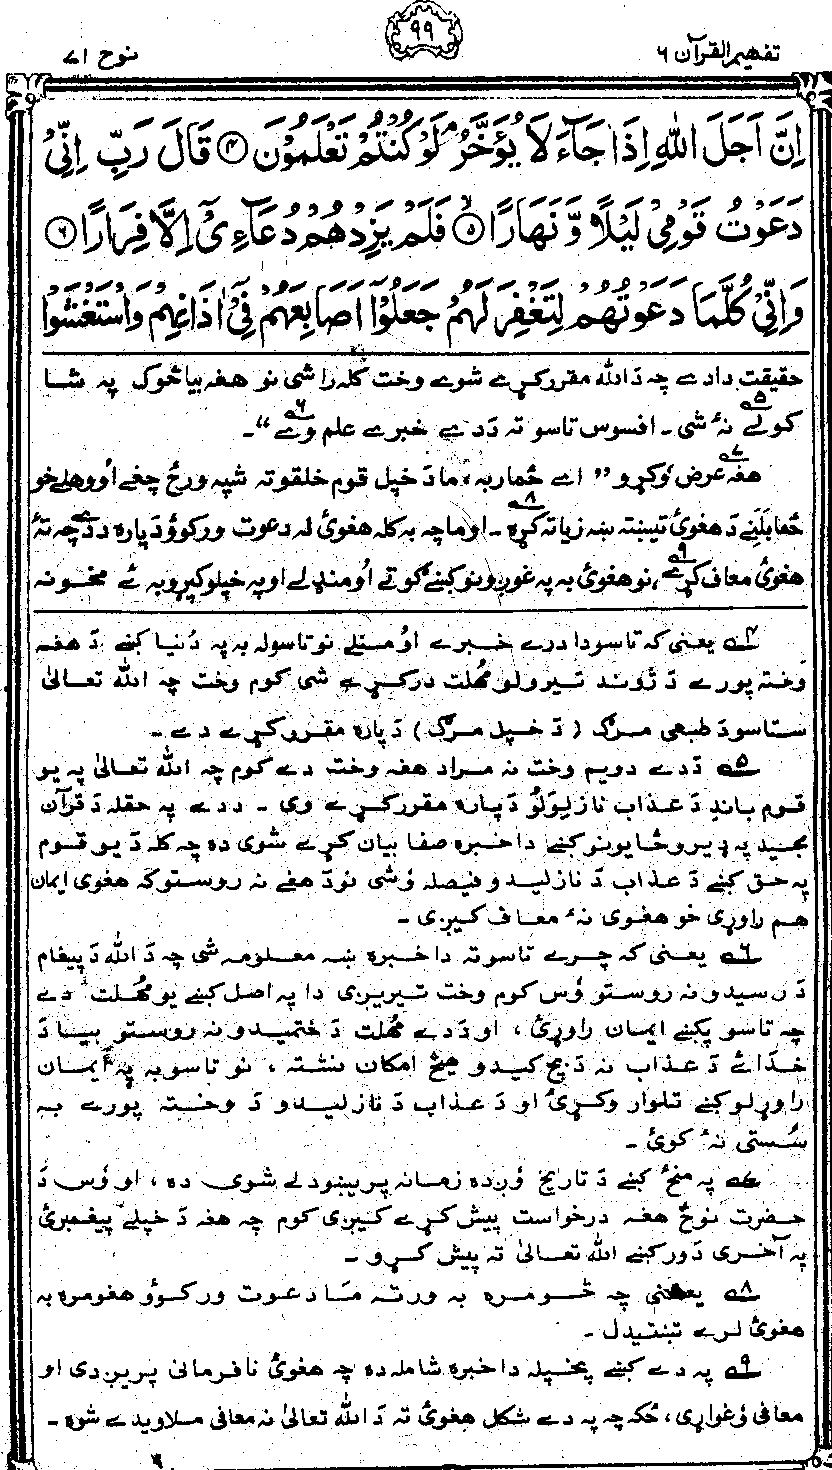 تفهيم القرآن ۶
۹۹
نوح ۷۱
اِنَّ اَجَلَ اللّٰهِ اِذَا جَآءَ لَا يُؤَخَّرُ ۘ لَوْ كُنْتُمْ تَعْلَمُوْنَ ۝۴ قَالَ رَبِّ اِنِّىْ
دَعَوْتُ قَوْمِىْ لَيْلًا وَّ نَهَارًا ۝۵ فَلَمْ يَزِدْهُمْ دُعَآءِىْٓ اِلَّا فِرَارًا ۝۶
وَ اِنِّىْ كُلَّمَا دَعَوْتُهُمْ لِتَغْفِرَ لَهُمْ جَعَلُوْٓا اَصَابِعَهُمْ فِىْٓ اٰذَانِهِمْ وَاسْتَغْشَوْا
حقيقت دادے چه دَ الله مقرر کړے شوے وخت کله راشى نو هغه بيا څوک په شا
کولے ۵ نۀ شى۔ افسوس تاسو ته دَ دے خبرے علم وے ۶“۔
هغه عرض ۷ وکړو ”اے ځما ربه، ما دَ خپل قوم خلقو ته شپه ورځ چغے اووهلے خو
ځما بَلَنے دَ هغوئ تيښته ښه زياته کړه ۸۔ او ما چه به کله هغوئ له دعوت ورکوؤ دَ پاره دَ دے چه تۀ
هغوئ معاف کړے ۹، نو هغوئ به په غوږونو کښے ګوتے اُومنډلے او په خپلو کپړو به ئے مخونه
۴ يعنى که تاسو دا درے خبرے اُومنلے نو تاسو له به په دُنيا کښے دَ هغه
وخته پورے دَ ژوند تيرولو مُهلت درکړے شى کوم وخت چه الله تعالىٰ
ستاسو دَ طبعى مرګ (دَ خپل مرګ) دَ پاره مقرر کړے دے۔
۵ دَ دے دويم وخت نه مراد هغه وخت دے کوم چه الله تعالىٰ په يو
قوم باندِ دَ عذاب نازلولو دَ پاره مقرر کړے وى۔ دَ دے په حقله دَ قرآن
مجيد په ډيرو ځايونو کښے دا خبره صفا بيان کړے شوى ده چه کله دَ يو قوم
په حق کښے دَ عذاب دَ نازليدو فيصله وُشى نو دَ هغے نه روستو که هغوى ايمان
هم راوړى خو هغوى نۀ معاف کيږى۔
۶ يعنى که چرے تاسو ته دا خبره ښه معلومه شى چه دَ الله دَ پيغام
دَ رسيدو نه روستو وُس کوم وخت تيريږى دا په اصل کښے يو مُهلت دے
چه تاسو پکښے ايمان راوړئ، او دَ دے مُهلت دَ ختميدو نه روستو بيا دَ
خدائے دَ عذاب نه دَ بچ کيدو هيڅ امکان نشته، نو تاسو به په ايمان
راوړلو کښے تلوار وکړئ او دَ عذاب دَ نازليدو دَ وخته پورے به
سُستى نۀ کوئ۔
۷ په منځ کښے دَ تاريخ وُږده زمانه پريښودلے شوى ده، او وُس دَ
حضرت نوحؑ هغه درخواست پيش کړے کيږى کوم چه هغه دَ خپلے پيغمبرئ
په آخرى دَور کښے الله تعالىٰ ته پيش کړو۔
۸ يعنى چه څومره به ورته ما دعوت ورکوؤ هغومره به
هغوئ لرے تښتيدل۔
۹ په دے کښے پخپله دا خبره شامله ده چه هغوئ نا فرمانى پريږدى او
معافى وُغواړى، ځکه چه په دے شکل هغوئ ته دَ الله تعالىٰ نه معافى ملاويدے شوه۔